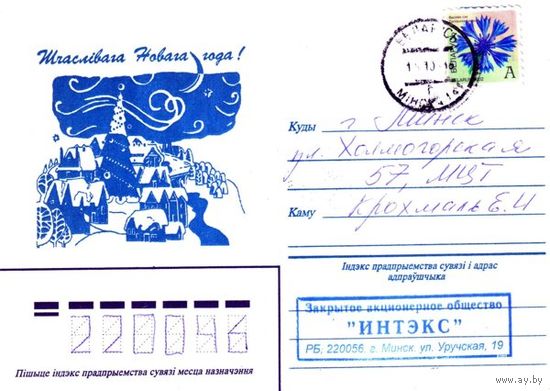 Шчаслівага Новага года!
БЕЛАРУСЬ
МІНСК
А
Куды г. Минск
ул. Холмогорская
57, МЦТ
Каму Крохмаль Е.И
Індэкс прадпрыемства сувязі і адрас
адпраўшчыка
Закрытое акционерное общество
"ИНТЭКС"
РБ, 220056, г. Минск. ул. Уручская, 19
220046
Пішыце індэкс прадпрыемства сувязі месца назначэння
www.ay.by